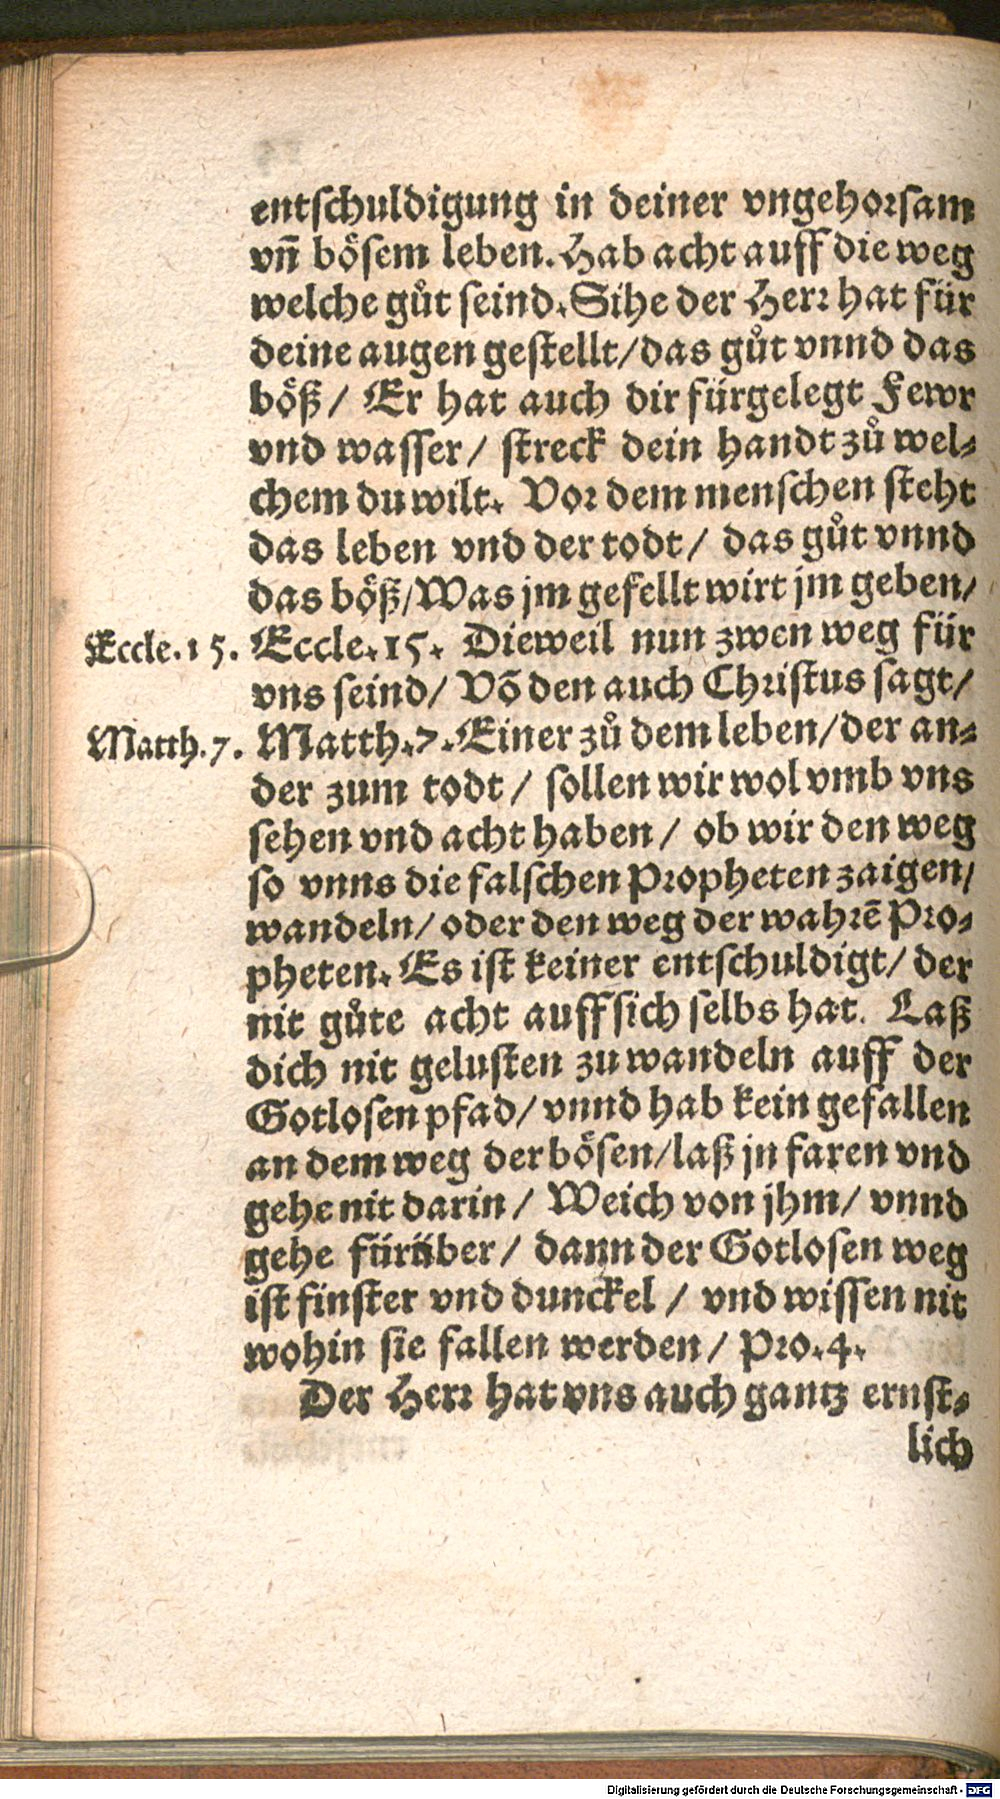 entschuldigung in deiner vngehorsam
vn̄ bösem leben. Hab acht auff die weg
welche gůt seind. Sihe der Herr hat für
deine augen gestellt/das gůt vnnd das
böß/ Er hat auch dir fürgelegt Fewr
vnd wasser/ streck dein handt zů wel⸗
chem du wilt. Vor dem menschen steht
das leben vnd der todt/ das gůt vnnd
das böß/Was jm gefellt wirt jm geben/
Eccle.15. Eccle.15. Dieweil nun zwen weg für
vns seind/ Võ den auch Christus sagt/
Matth.7. Matth.7. Einer zů dem leben/der an⸗
der zum todt/ sollen wir wol vmb vns
sehen vnd acht haben/ ob wir den weg
so vnns die falschen Propheten zaigen/
wandeln/ oder den weg der wahrē Pro⸗
pheten. Es ist keiner entschuldigt/ der
nit gůte acht auff sich selbs hat. Laß
dich nit gelusten zu wandeln auff der
Gotlosen pfad/ vnnd hab kein gefallen
an dem weg der bösen/laß jn faren vnd
gehe nit darin/ Weich von jhm/ vnnd
gehe fürüber/ dann der Gotlosen weg
ist finster vnd dunckel/ vnd wissen nit
wohin sie fallen werden/ Pro.4.
Der Herr hat vns auch gantz ernst⸗
lich
Digitalisierung gefördert durch die Deutsche Forschungsgemeinschaft - DFG